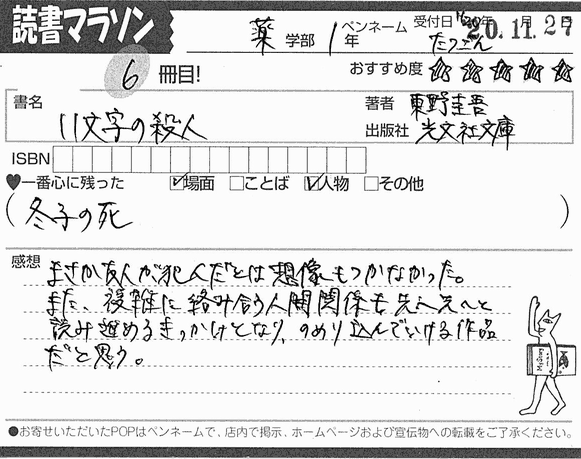 読書マラソン
薬 学部 1年 ペンネーム たつごん 受付日 20.11.27
6 冊目! おすすめ度 ☆☆☆☆☆
書名 11文字の殺人
著者 東野圭吾
出版社 光文社文庫
ISBN
♥一番心に残った ☑場面 □ことば ☑人物 □その他
(冬子の死)
感想 まさか友人が犯人だとは想像もつかなかった。
また、複雑に絡み合う人間関係も先へ先へと
読み進めるきっかけとなり、のめり込んでいける作品
だと思う。
●お寄せいただいたPOPはペンネームで、店内で掲示、ホームページおよび宣伝物への転載をご了承ください。